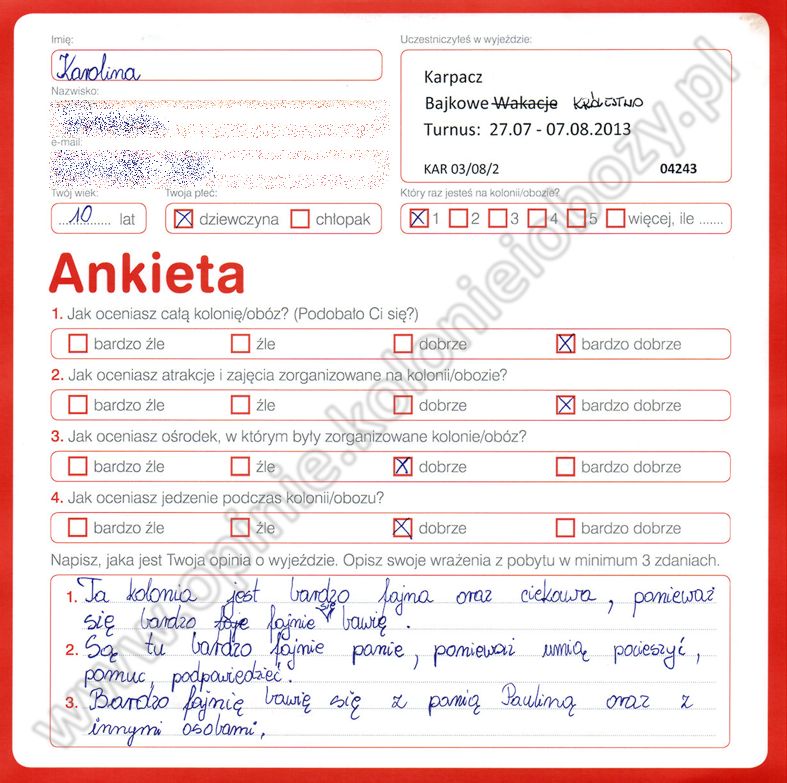 Imię:
Karolina
Nazwisko:
e-mail:
Twój wiek:
10 lat
Twoja płeć:
dziewczyna chłopak
Uczestniczyłeś w wyjeździe:
Karpacz
Bajkowe Wakacje KRÓLESTWO
Turnus: 27.07 - 07.08.2013
KAR 03/08/2 04243
Który raz jesteś na kolonii/obozie?
1 2 3 4 5 więcej, ile .......
Ankieta
1. Jak oceniasz całą kolonię/obóz? (Podobało Ci się?)
bardzo źle źle dobrze bardzo dobrze
2. Jak oceniasz atrakcje i zajęcia zorganizowane na kolonii/obozie?
bardzo źle źle dobrze bardzo dobrze
3. Jak oceniasz ośrodek, w którym były zorganizowane kolonie/obóz?
bardzo źle źle dobrze bardzo dobrze
4. Jak oceniasz jedzenie podczas kolonii/obozu?
bardzo źle źle dobrze bardzo dobrze
Napisz, jaka jest Twoja opinia o wyjeździe. Opisz swoje wrażenia z pobytu w minimum 3 zdaniach.
1. Ta kolonia jest bardzo fajna oraz ciekawa, ponieważ
się bardzo faje fajnie się bawię.
2. Są tu bardzo fajnie panie, ponieważ umią pocieszyć,
pomuc, podpowiedzieć.
3. Bardzo fajnię bawię się z panią Pauliną oraz z
innymi osobami,
www.opinie.kolonieiobozy.pl